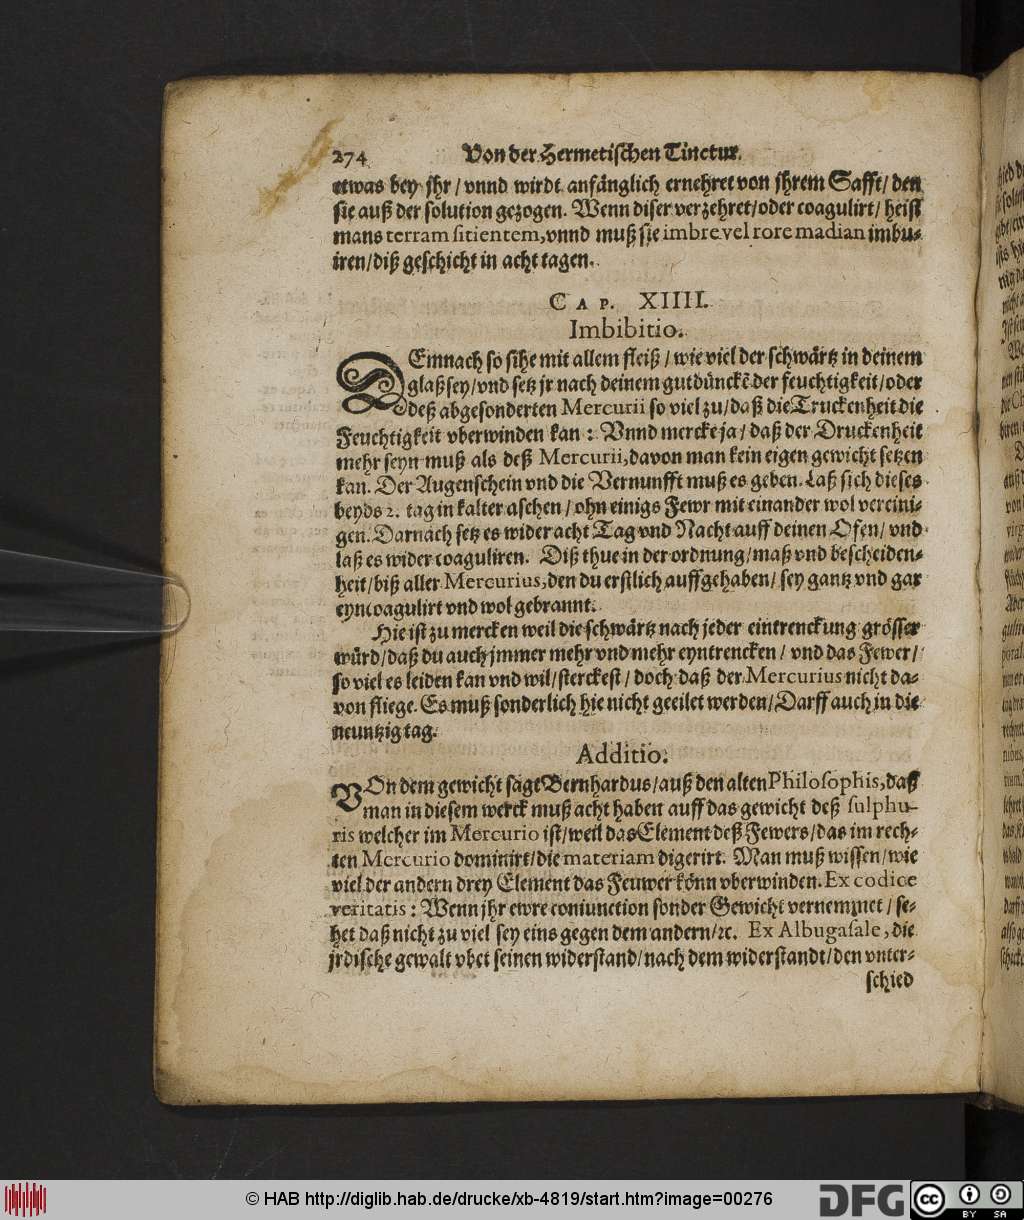 274 Von der Hermetischen Tinctur.
etwas bey jhr / vnnd wirdt anfänglich ernehret von jhrem Safft / den
sie auß der solution gezogen. Wenn diser verzehret / oder coagulirt / heist
mans terram sitientem, vnnd muß sie imbre vel rore madian imbu-
iren / diß geschicht in acht tagen.
CAP. XIIII.
Imbibitio.
DEmnach so sihe mit allem fleiß / wie viel der schwärtz in deinem
glaß sey / vnd setz jr nach deinem gutdünckē der feuchtigkeit / oder
deß abgesonderten Mercurii so viel zu / daß die Truckenheit die
Feuchtigkeit vberwinden kan : Vnnd mercke ja / daß der Druckenheit
mehr seyn muß als deß Mercurii, davon man kein eigen gewicht setzen
kan. Der Augenschein vnd die Vernunfft muß es geben. Laß sich dieses
beyds 2. tag in kalter aschen / ohn einigs Fewr mit einander wol vereini-
gen. Darnach setz es wider acht Tag vnd Nacht auff deinen Ofen / vnd
laß es wider coaguliren. Diß thue in der ordnung / maß vnd bescheiden-
heit / biß aller Mercurius, den du erstlich auffgehaben / sey gantz vnd gar
eyncoagulirt vnd wol gebrannt.
Hie ist zu mercken weil die schwärtz nach jeder eintrenckung grösser
würd / daß du auch jmmer mehr vnd mehr eyntrencken / vnd das Fewer /
so viel es leiden kan vnd wil / sterckest / doch daß der Mercurius nicht da-
von fliege. Es muß sonderlich hie nicht geeilet werden / Darff auch in die
neuntzig tag.
Additio.
VOn dem gewicht sagt Bernhardus / auß den alten Philosophis, daß
man in diesem werck muß acht haben auff das gewicht deß sulphu-
ris welcher im Mercurio ist / weil das Element deß Fewers / das im rech-
ten Mercurio dominirt / die materiam digerirt. Man muß wissen / wie
viel der andern drey Element das Feuwer könn vberwinden. Ex codice
veritatis : Wenn jhr ewre coniunction sonder Gewicht vernemmet / se-
het daß nicht zu viel sey eins gegen dem andern / ꝛc. Ex Albugasale, die
jrdische gewalt vbet seinen widerstand / nach dem widerstandt / den vnter-
schied
© HAB http://diglib.hab.de/drucke/xb-4819/start.htm?image=00276
DFG
cc BY SA